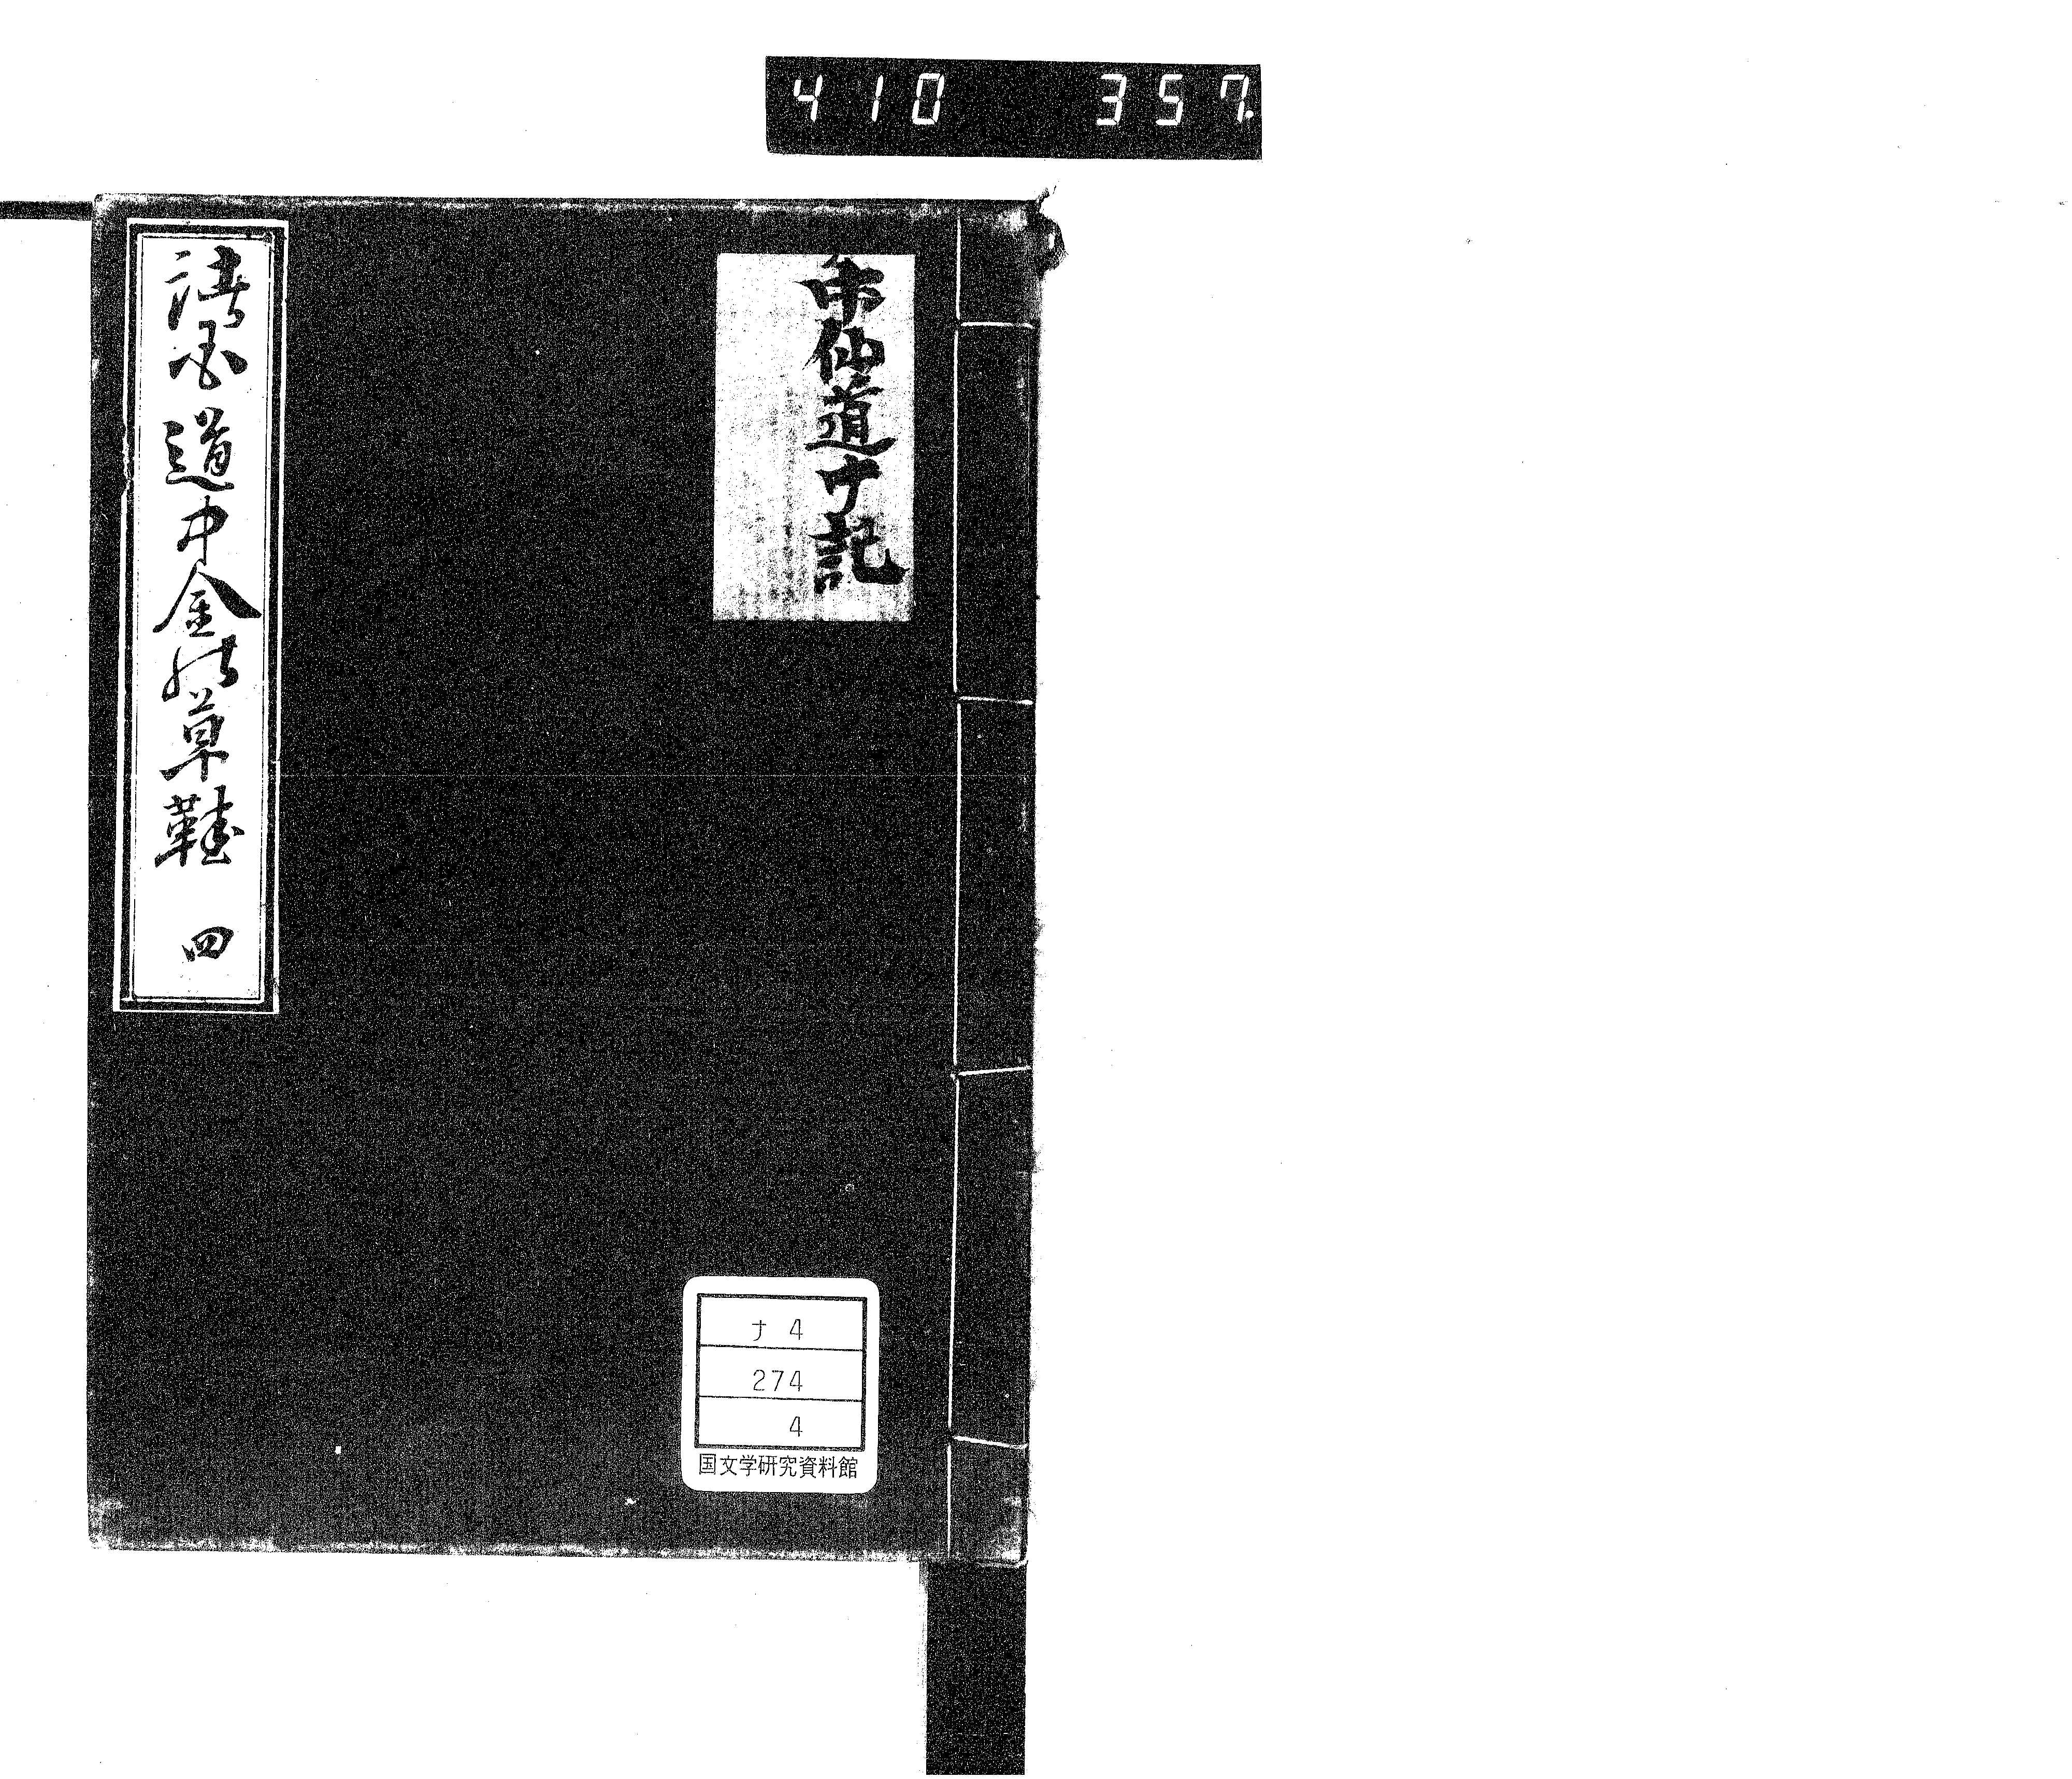 410 357.
中仙道記
諸国道中金の草鞋 四
ナ 4
274
4
国文学研究資料館